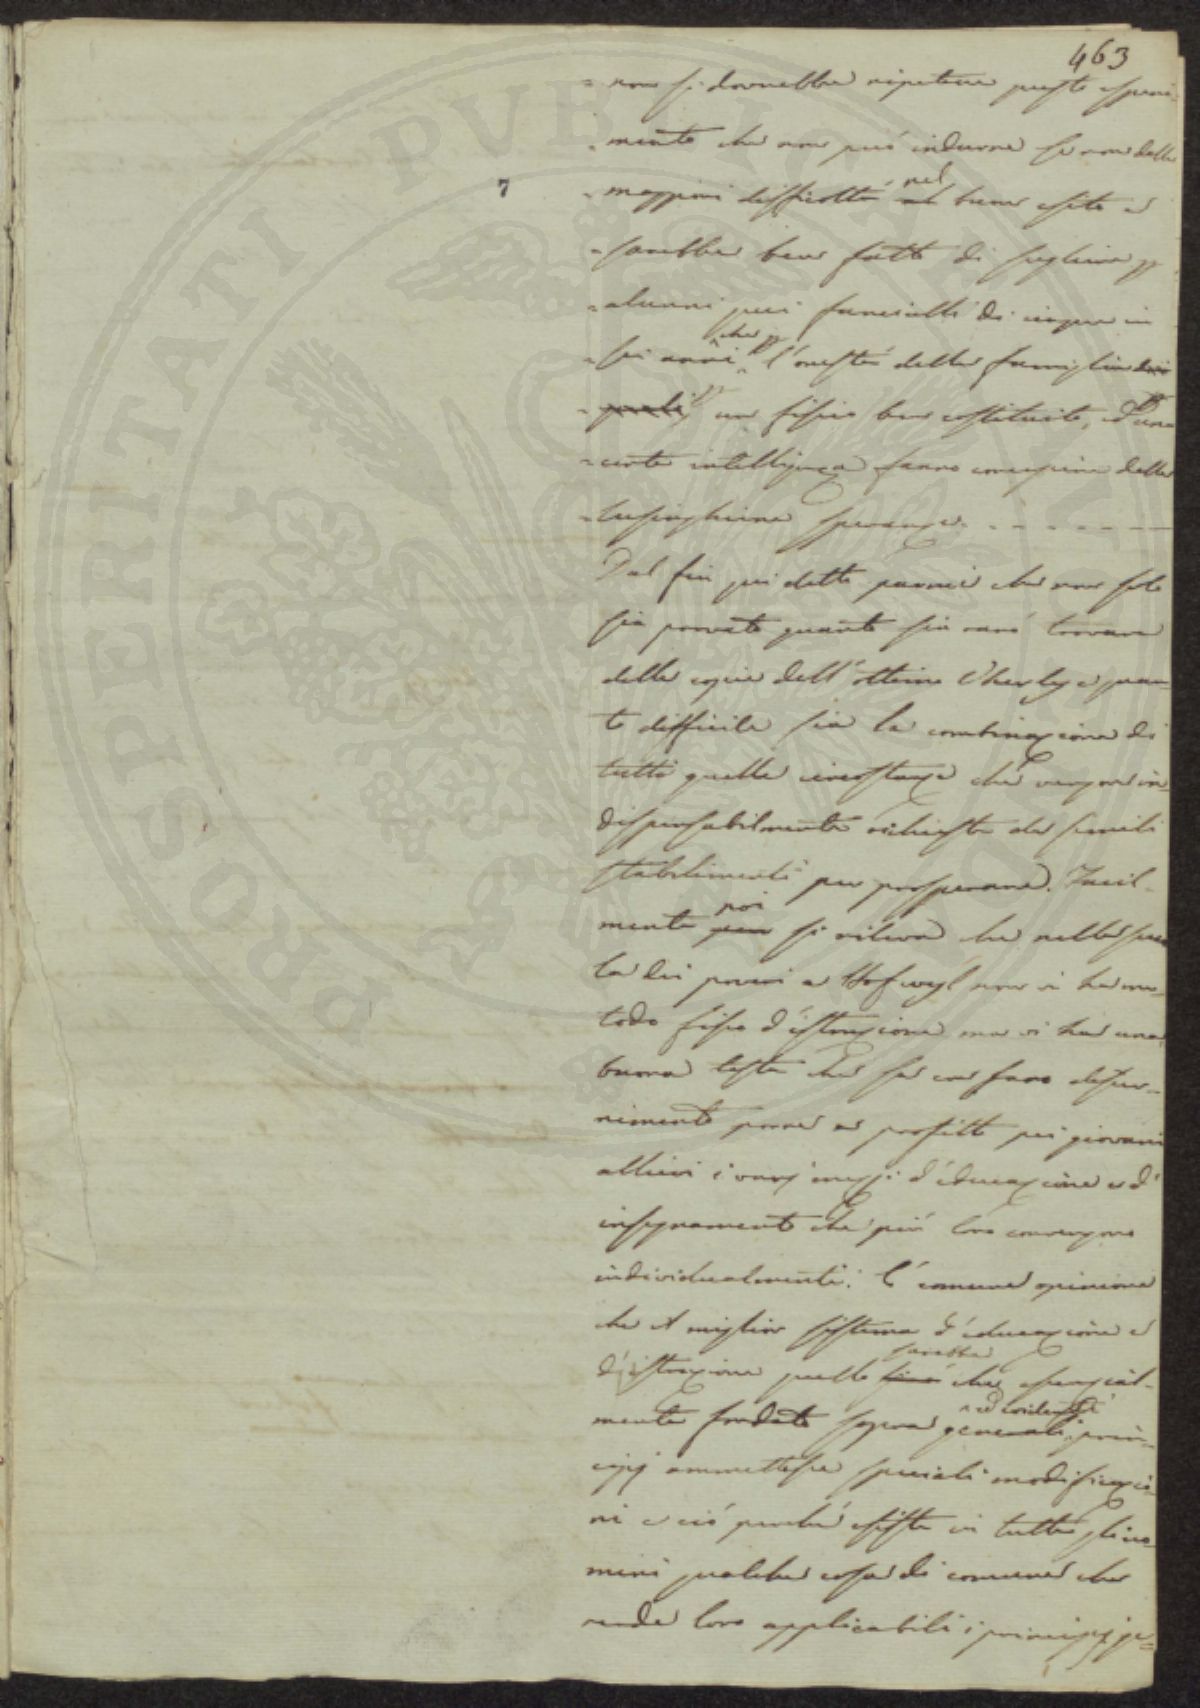 463
= non si dovrebbe ripetere questo speri-
= mento che non può indurne se non delle
7
= maggiori difficoltà nel buon esito e
= sarebbe ben fatto di scegliere p
= alunni quei fanciulli di cinque in
= sei anni che p l'onestà delle famiglie dei
= quali p un fisico ben costituito, e p una
= certa intelligenza fanno concepire delle
= lusinghiere speranze. - - - - - - -
Dal fin qui detto parmi che non solo
sia provato quanto sia raro trovare
delle copie dell'ottimo Wherly e quan-
to difficile sia la combinazione di
tutte quelle circostanze che vengono in-
dispensabilmente richieste da simili
stabilimenti per prosperare. Facil-
mente poi si rileva che nella scuo
la dei poveri a Hofwyl non vi ha me-
todo fisso d'istruzione ma vi ha una
buona testa che sa con sano discer-
nimento porre a profitto pei giovani
allievi i varj mezzi d'educazione e d'
insegnamento che più loro convengono
individualmente. È comune opinione
che il miglior sistema d'educazione e
d'istruzione quello sarebbe che essenzial-
mente fondato sopra generali ed evidenti prin-
cipj ammettesse speciali modificazio-
ni e ciò perché esiste in tutti gli uo-
mini qualche cosa di comune che
rende loro applicabili i principj ge-
PROSPERITATI PUBLICAE